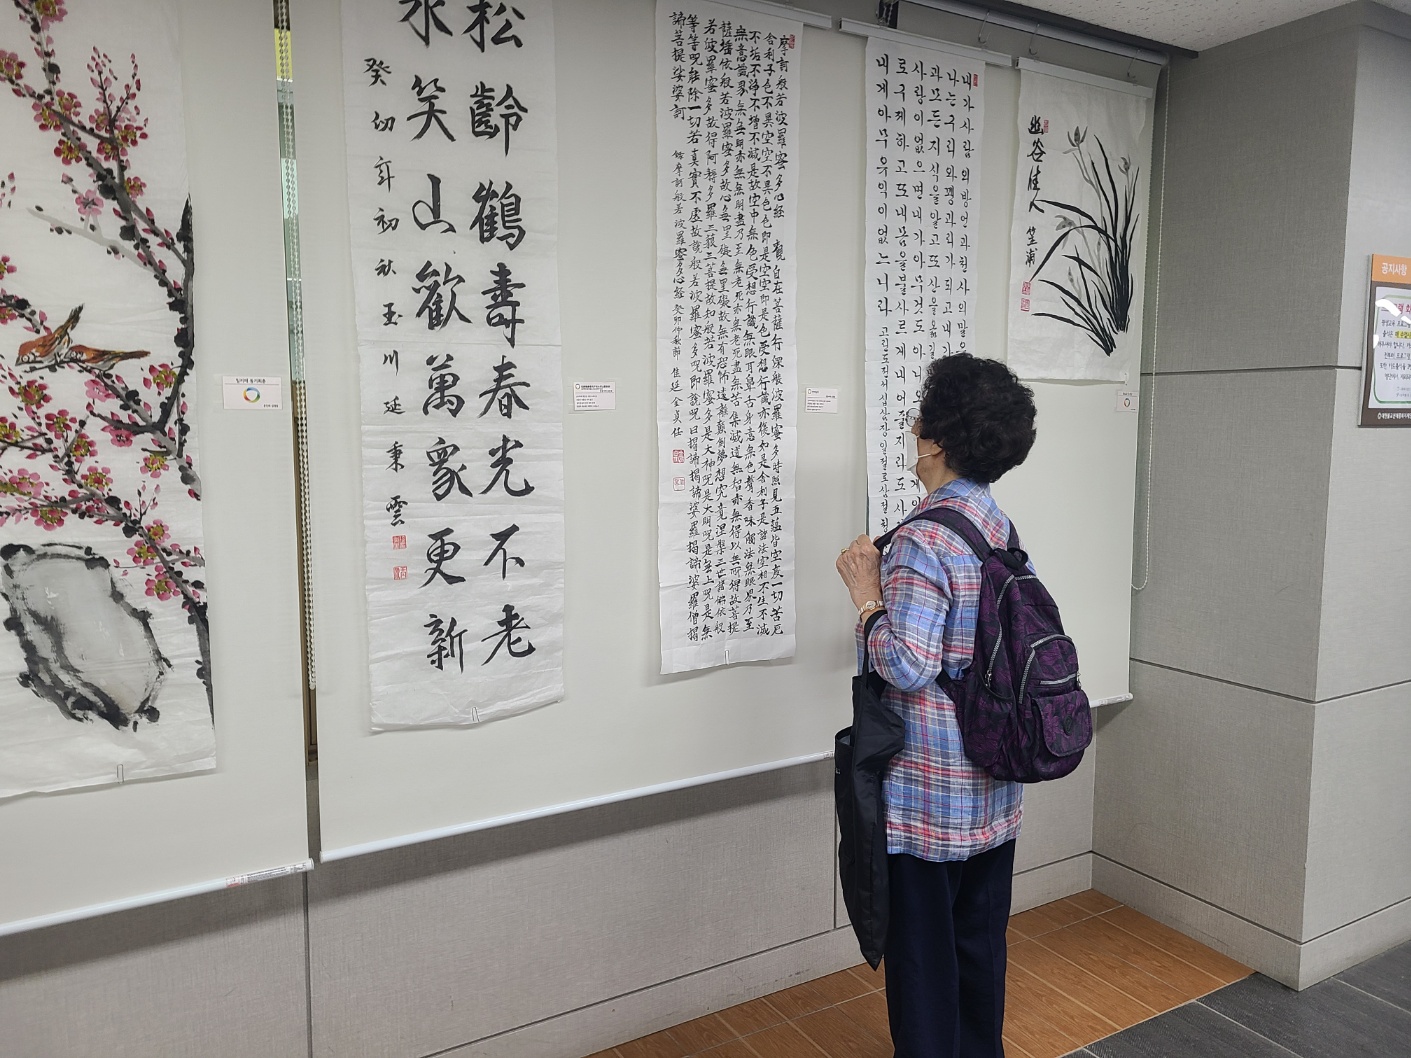 松齡鶴壽春光不老
水笑山歡萬象更新
癸卯年初秋 玉川 延秉雲
摩訶般若波羅蜜多心經 觀自在菩薩行深般若波羅蜜多時照見五蘊皆空度一切苦厄
舍利子色不異空空不異色色即是空空即是色受想行識亦復如是舍利子是諸法空相不生不滅
不垢不淨不增不減是故空中無色無受想行識無眼耳鼻舌身意無色聲香味觸法無眼界乃至
無意識界無無明亦無無明盡乃至無老死亦無老死盡無苦集滅道無智亦無得以無所得故菩提
薩埵依般若波羅蜜多故心無罣礙無罣礙故無有恐怖遠離顚倒夢想究竟涅槃三世諸佛依般
若波羅蜜多故得阿耨多羅三藐三菩提故知般若波羅蜜多是大神呪是大明呪是無上呪是無
等等呪能除一切苦眞實不虛故說般若波羅蜜多呪即說呪曰揭諦揭諦波羅揭諦波羅僧揭
諦菩提娑婆訶 摩訶般若波羅蜜多心經 癸卯仲秋節
내가 사람의 방언과 천사의 말
나는 구리와 꽹과리가 되고 내가
과 모든 지식을 알고 또 산을 옮길
사랑이 없으면 내가 아무것도 아니
로 구제하고 또 내 몸을 불사르게 내어 줄지라도 사
내게 아무 유익이 없느니라 고린도전서 십삼장 일절로 삼절
幽谷佳人
공지사항